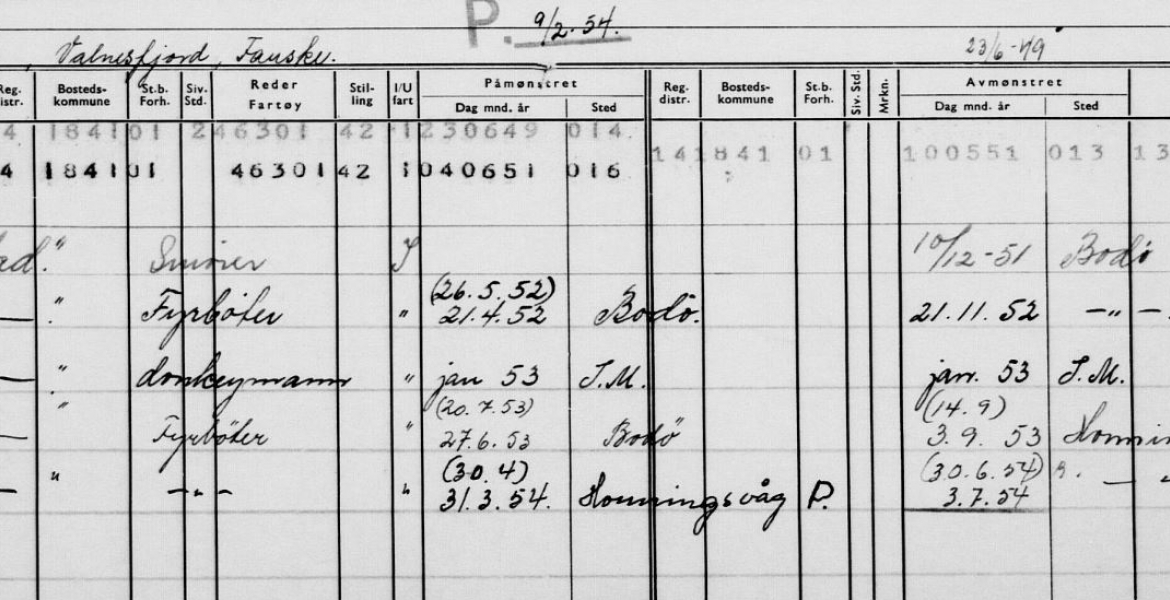 P. 9/2-54.
Valnesfjord, Fauske. 23/6-49
Reg. distr. Bosteds-kommune St.b. Forh. Siv. Std. Reder Fartøy Stil-ling I/U fart Påmønstret Dag mnd. år Sted Reg. distr. Bosteds-kommune St.b. Forh. Siv. Std. Mrkn. Avmønstret Dag mnd. år Sted
4 1841 01 2 46301 42 1 230649 014
14 1841 01 100551 013 13
4 1841 01 46301 42 1 040651 016
" Smører I 10/12-51 Bodø
(26.5.52)
— " Fyrbøter " 21.4.52 Bodø. 21.11.52 —"—
— " donkeymann " jan 53 T.M. jan. 53 T.M.
" (20.7.53) (14.9)
— Fyrbøter " 27.6.53 Bodø 3.9.53 Honnin
(30.4) (30.6.54)
— " —"— " 31.3.54. Honningsvåg P. 3.7.54 — "